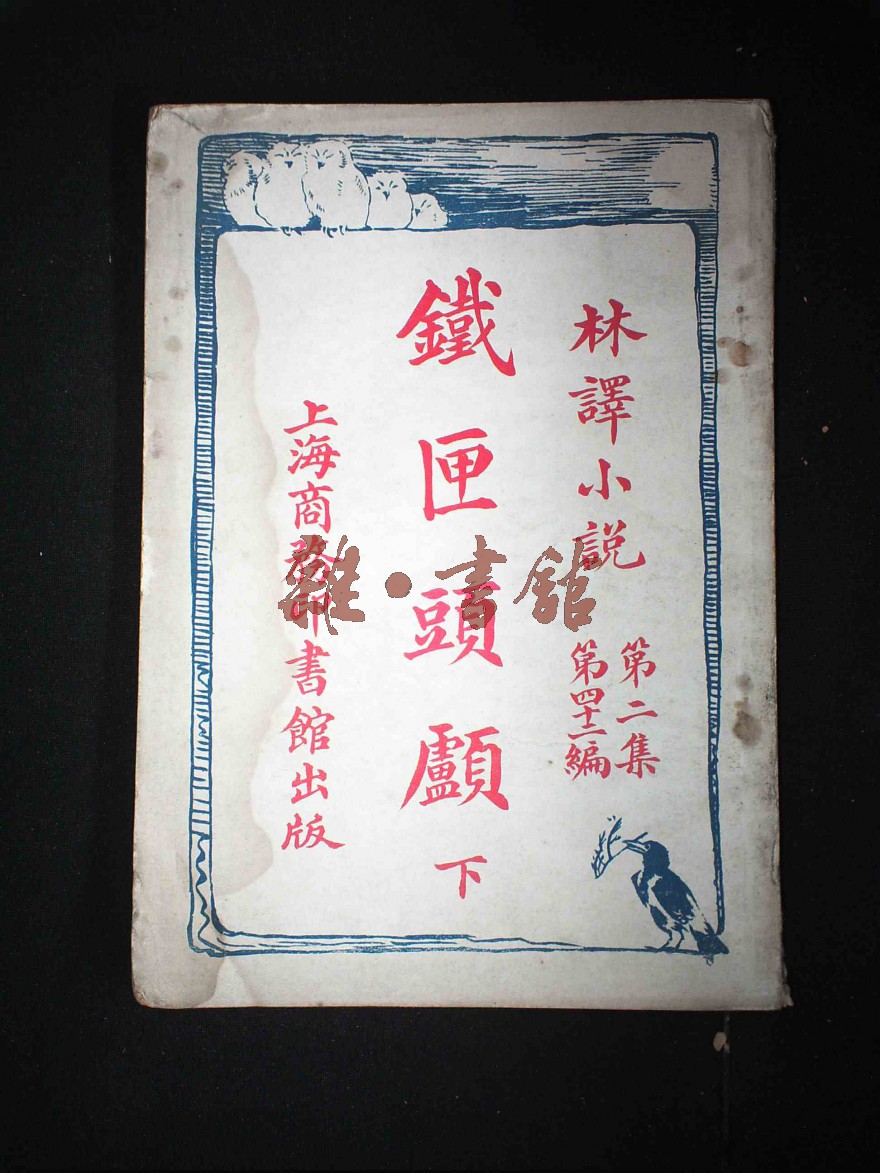 林譯小説
第二集
第四十二編
鐵匣頭顱 下
上海商務印書館出版
雜·書館